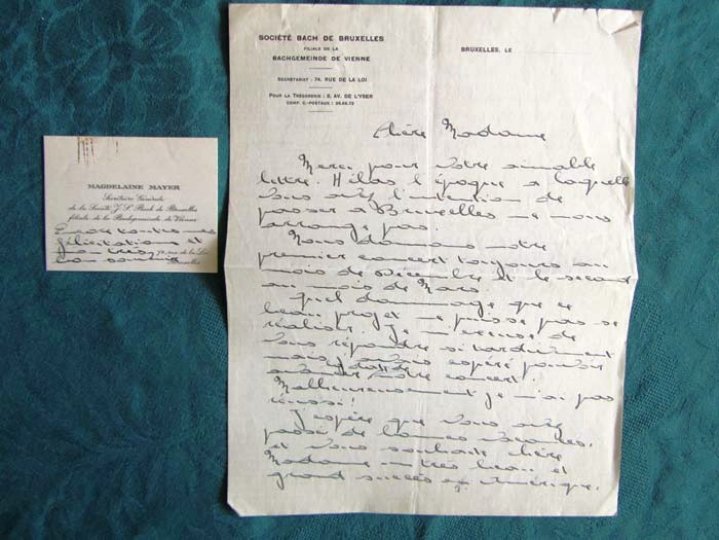 MAGDELAINE MAYER
Secrétaire Générale
de la Société J. S. Bach de Bruxelles
filiale de la Bachgemeinde de Vienne
félicitations et
74 rue de la Loi
Bruxelles
SOCIÉTÉ BACH DE BRUXELLES
FILIALE DE LA
BACHGEMEINDE DE VIENNE
SECRÉTARIAT : 74, RUE DE LA LOI
POUR LA TRÉSORERIE : 8, AV. DE L'YSER
COMP. C.-POSTAUX :
BRUXELLES, LE
Chère Madame
Merci pour votre aimable
lettre. Hélas l'époque à laquelle
vous avez l'intention de
passer à Bruxelles ne nous
arrange pas.
Nous donnons notre
premier concert toujours au
mois de Décembre et le second
au mois de Mars
Quel dommage que ce
beau projet ne puisse pas se
réaliser. Je m'excuse de
vous répondre si tardivement
mais j'avais espéré pouvoir
avancer notre concert.
Malheureusement je n'ai pas
réussi!
J'espère que vous avez
passé de bonnes vacances,
et vous souhaite chère
Madame un très beau et
grand succès en Amérique.